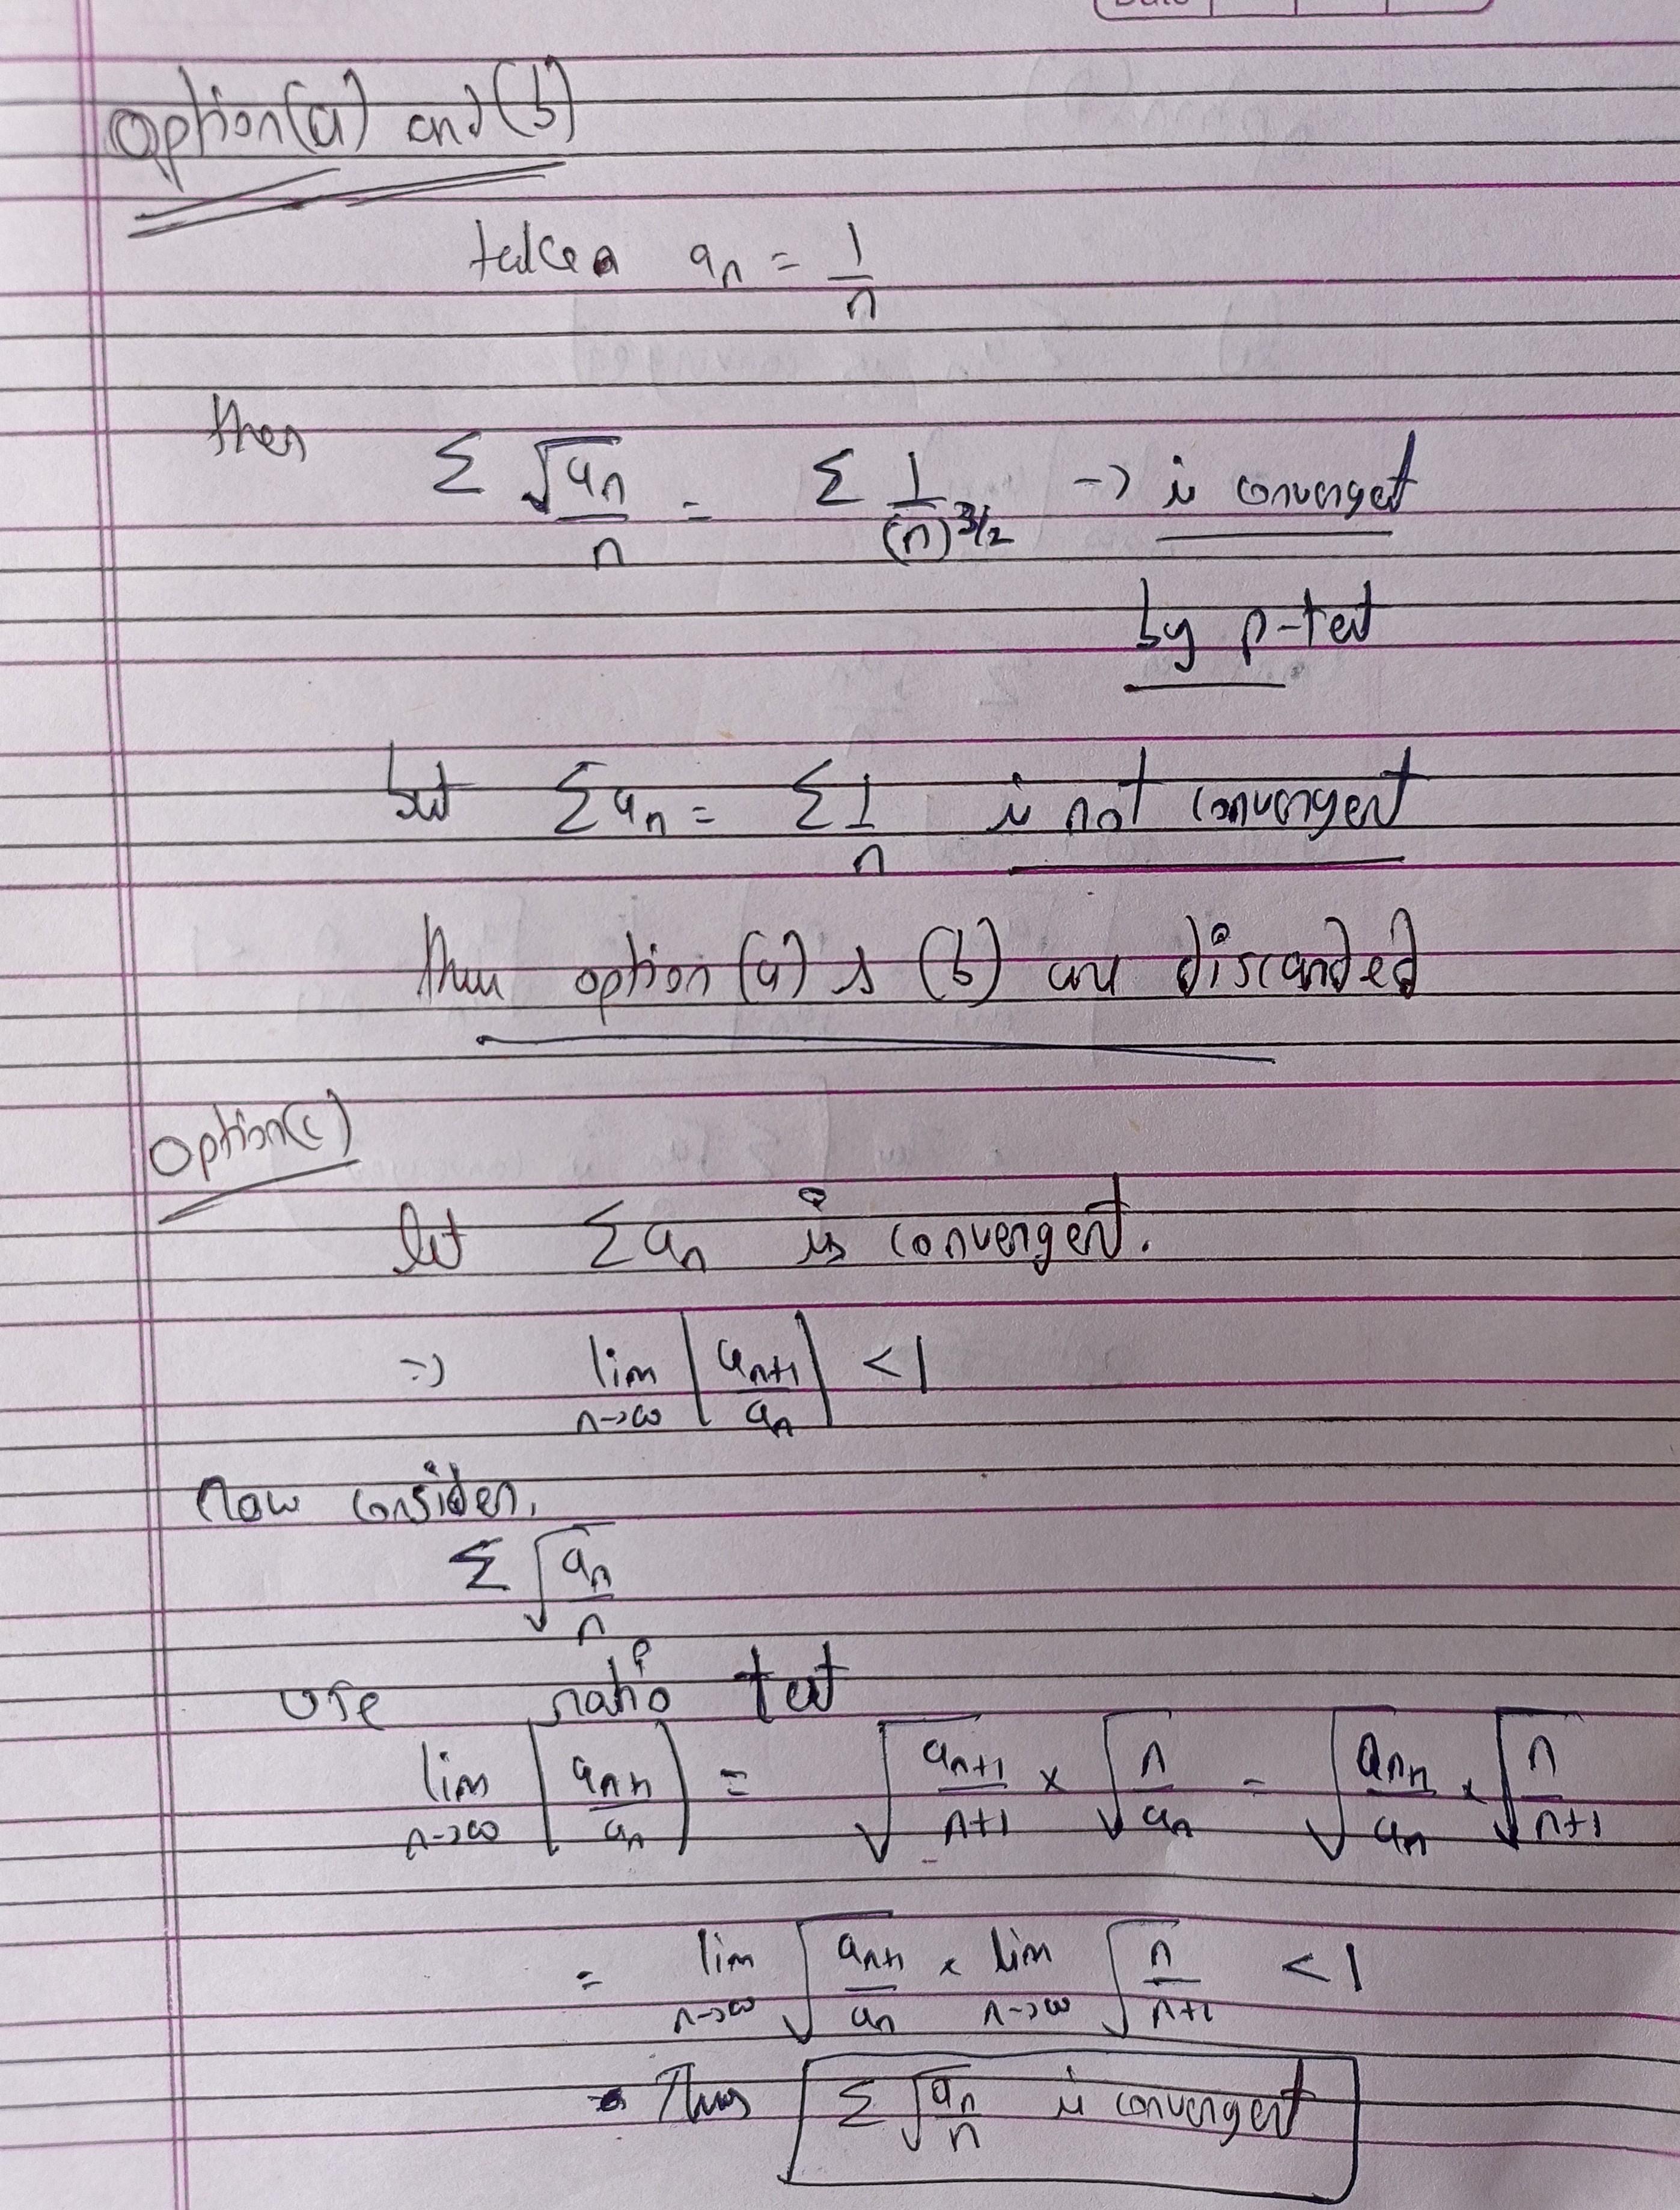 Date
Option(a) and (b)
take a_n = 1/n
then Σ √a_n/n = Σ 1/(n)^3/2 -> is convergent
by p-test
but Σa_n = Σ 1/n is not convergent
then option (a) & (b) are discarded
Option(c)
let Σa_n is convergent.
=> lim n->∞ |a_n+1/a_n| < 1
Now consider,
Σ √(a_n/n)
use ratio test
lim n->∞ |a_n+1/a_n| = √(a_n+1/n+1) × √(n/a_n) = √(a_n+1/a_n) × √(n/n+1)
= lim n->∞ √(a_n+1/a_n) × lim n->∞ √(n/n+1) < 1
Thus Σ √(a_n/n) is convergent